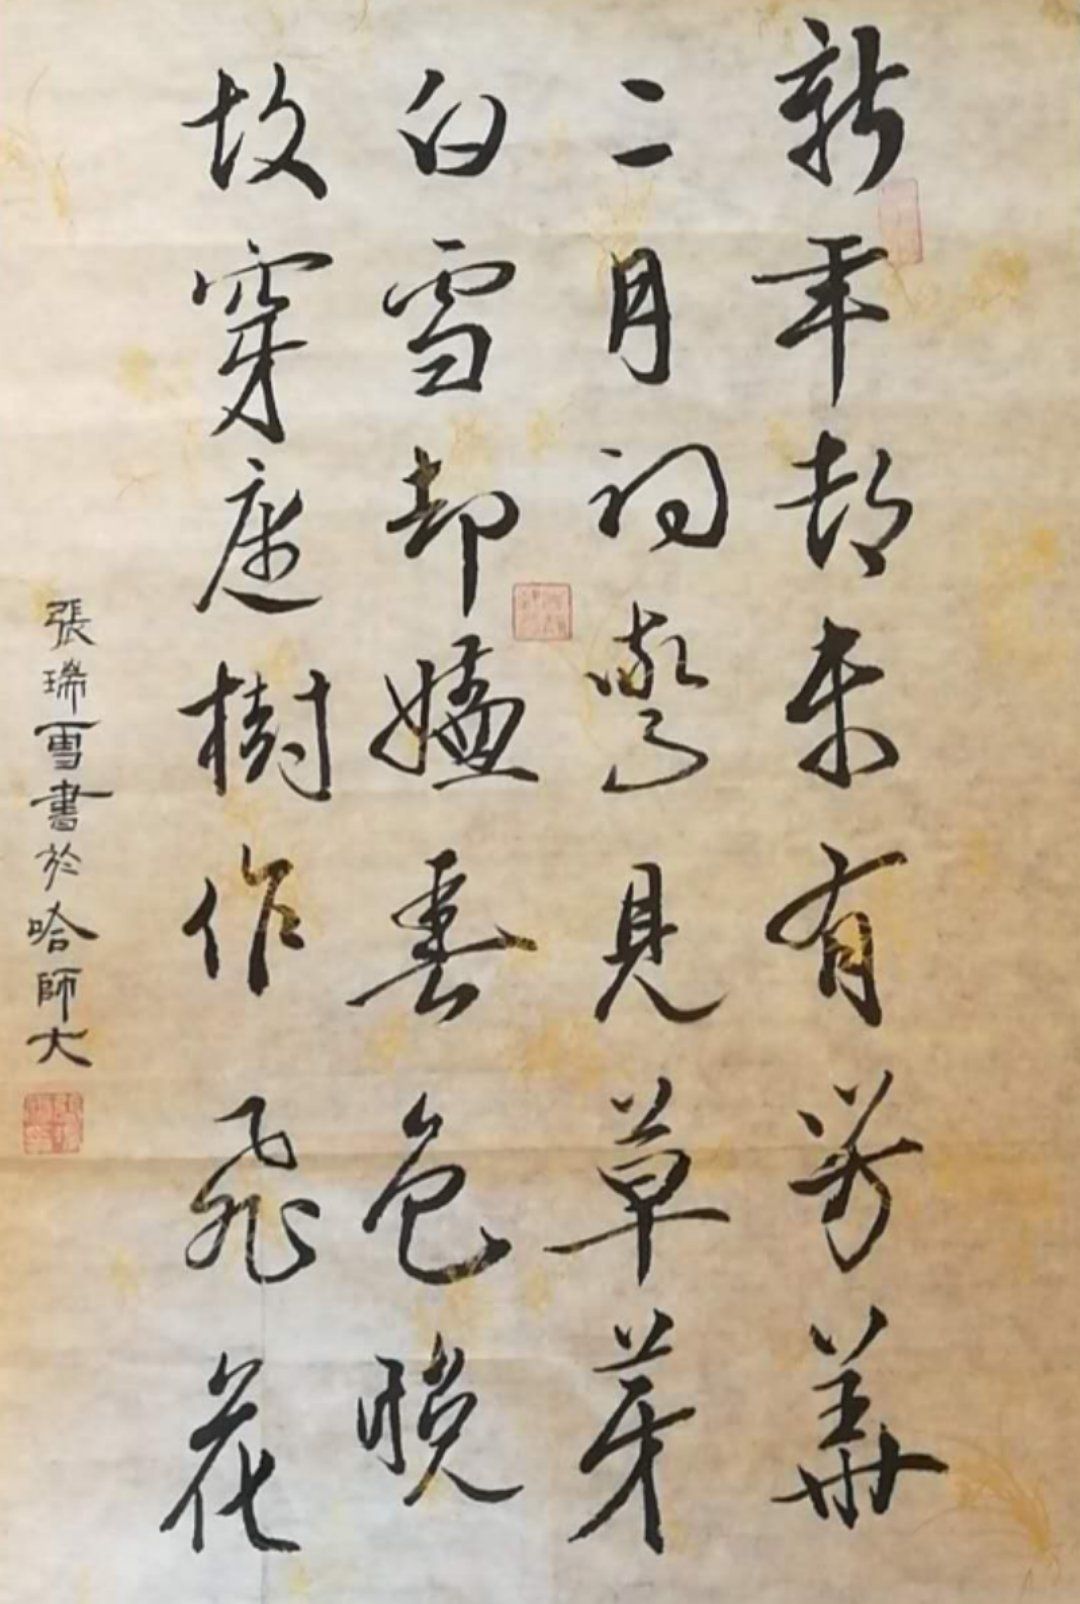 新年都未有芳華
二月初驚見草芽
白雪却嫌春色晚
故穿庭樹作飛花
張瑞雪書於哈師大